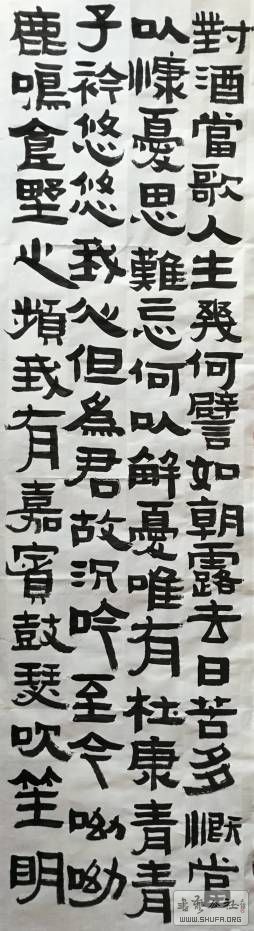 對酒當歌人生幾何譬如朝露去日苦多慨當
以慷憂思難忘何以解憂唯有杜康青青
子衿悠悠我心但為君故沉吟至今呦呦
鹿鳴食墅之頻我有嘉賓鼓瑟吹笙明
WWW.SHUFA.ORG